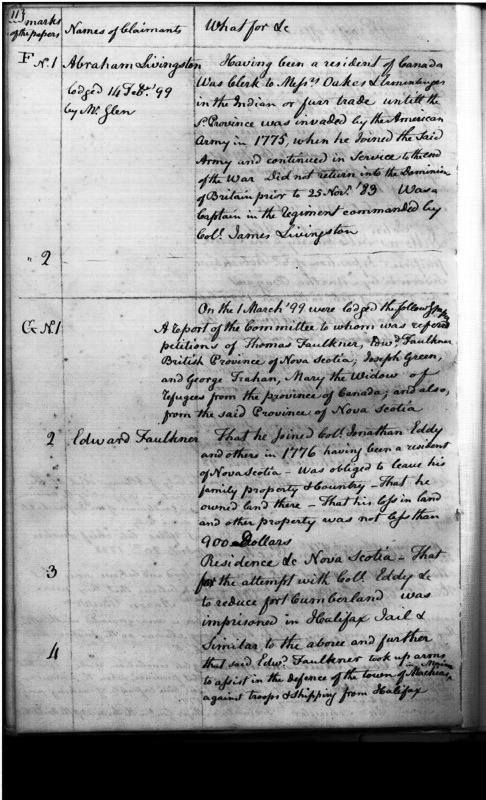 11
marks of the papers
Names of Claimants
What for &c
F No. 1
Abraham Livingston
lodged 14 Feby. '99
by Mr. Glen
Having been a resident of Canada
Was Clerk to Messrs Oakes &
in the Indian or furr trade untill the
sd. Province was invaded by the American
Army in 1775, when he Joined the Said
Army and continued in Service to the end
of the War Did not return into the Dominion
of Britain prior to 25 Novr. '83 Was a
Captain in the regiment commanded by
Coll. James Livingston
" 2
On the 1 March '99 were lodged the follow.g papers
G No. 1
A report of the Committee to whom was refered
petitions of Thomas Faulkner, Edwd. Faulkner
British Province of Nova Scotia; Joseph Green,
and George Trahan, Mary the Widow of
refugees from the province of Canada; and also,
from the said Province of Nova Scotia
2
Edward Faulkner
That he Joined Coll. Jonathan Eddy
and others in 1776 having been a resident
of Nova Scotia – Was obliged to leave his
family property & Country – That he
owned land there – That his loss in land
and other property was not less than
900 Dollars
3
Residence &c Nova Scotia – That
for the attempt with Coll. Eddy &c
to reduce fort Cumberland was
imprisoned in Halifax Jail &
4
Similar to the above and further
that said Edwd. Faulkner took up arms
to assist in the defence of the town of Machias
against troops & Shipping from Halifax